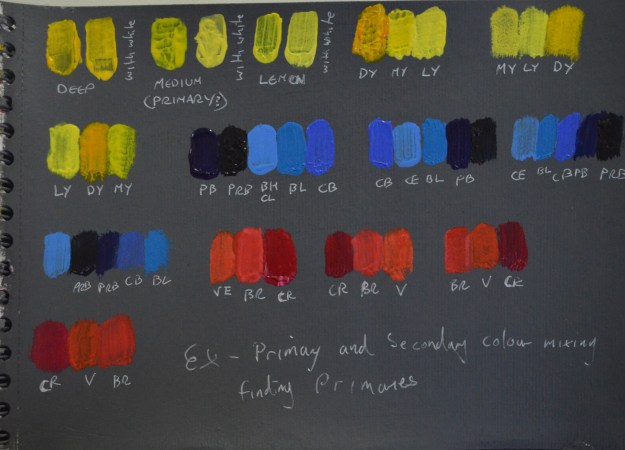 with white with white with white
DEEP MEDIUM LEMON DY MY LY MY LY DY
(PRIMARY?)
LY DY MY PB PRB BH BL CB CB CE BL PB CE BL CB PB PRB
CL
PRB PRB CB BL VE BR CR CR BR V BR V CR
CR V BR
EX - Primay and Secondary colour mixing
finding Primaries